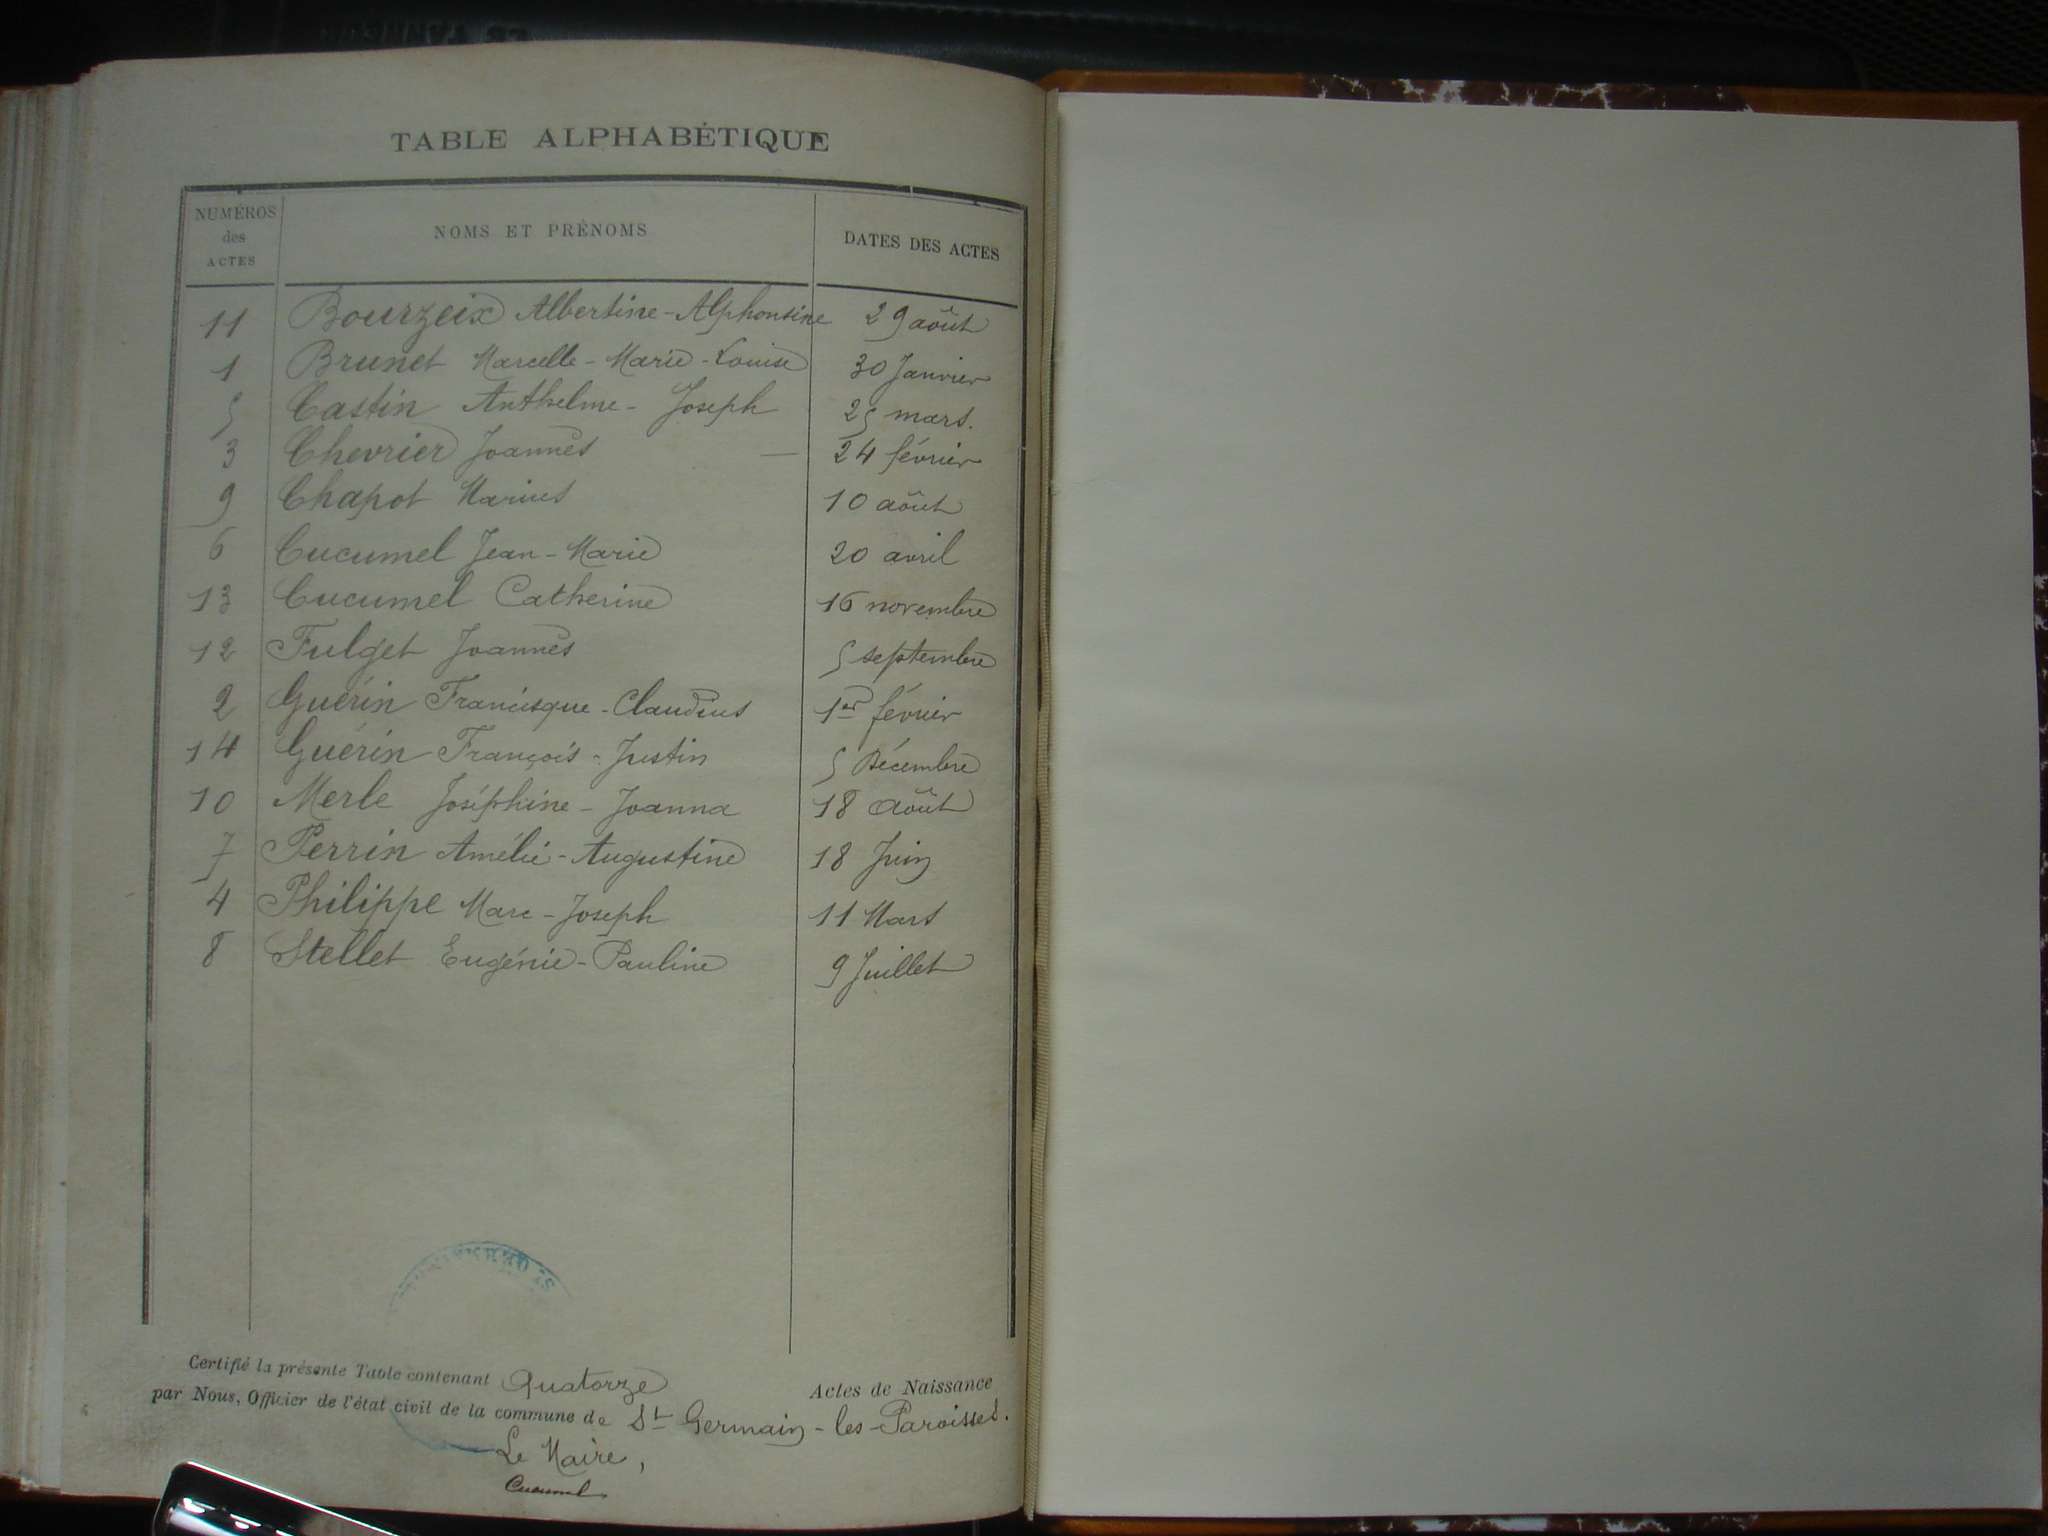 TABLE ALPHABÉTIQUE
NUMÉROS des ACTES NOMS ET PRÉNOMS DATES DES ACTES
11 Bourzeix Albertine-Alphonsine 29 août
1 Brunet Marcelle-Marie-Louise 30 Janvier
5 Castin Anthelme-Joseph 25 mars.
3 Chevrier Joannès — 24 février
9 Chapot Marius 10 août
6 Cucumel Jean-Marie 20 avril
13 Cucumel Catherine 16 novembre
12 Fulget Joannès 5 septembre
2 Guérin Francisque-Claudius 1er février
14 Guérin François-Justin 5 Décembre
10 Merle Joséphine-Joanna 18 août
7 Perrin Amélie-Augustine 18 Juin
4 Philippe Marc-Joseph 11 Mars
8 Stellet Eugénie-Pauline 9 Juillet
Certifié la présente Table contenant Quatorze Actes de Naissance
par Nous, Officier de l'état civil de la commune de St Germain-les-Paroisses.
Le Maire,
Cucumel